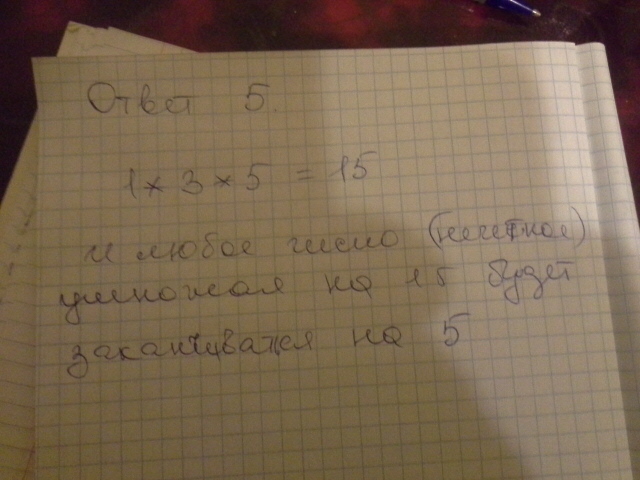 Ответ 5.
1 * 3 * 5 = 15
и любое число (нечетное)
умножая на 15 будет
заканчиватся на 5